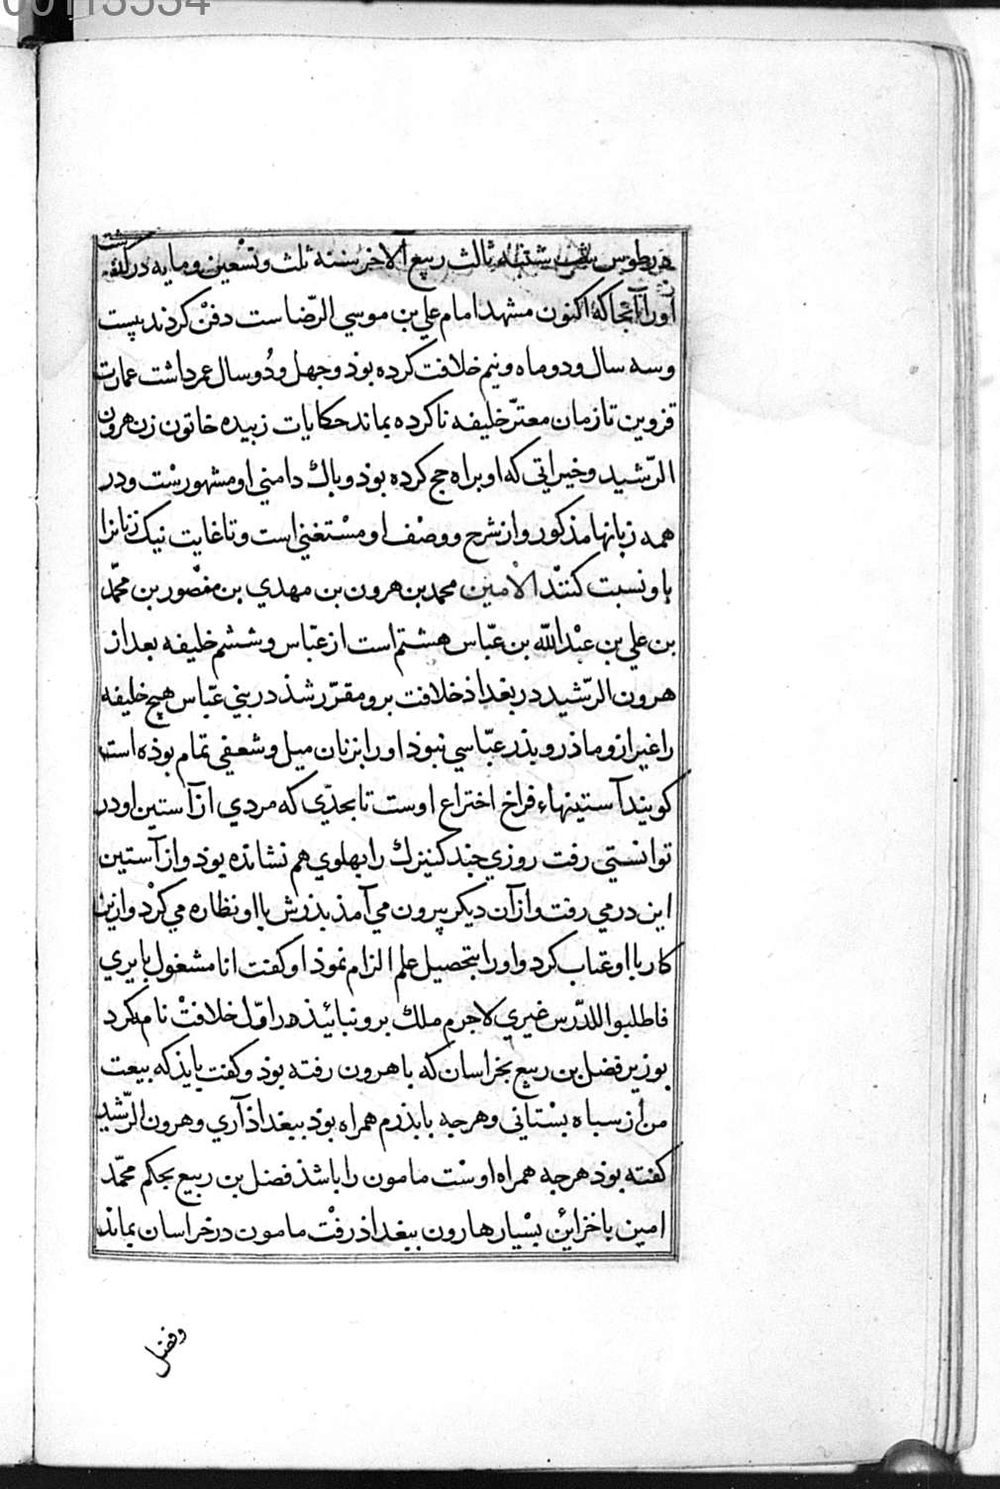 00113534
در طوس شب شنبه ثالث ربیع الاخر سنه ثلث و تسعین و مایه درکذشت
اورا آنجا که اکنون مشهد امام علي بن موسي الرّضاست دفن کردند بیست
و سه سال و دو ماه و نیم خلافت کرده بوذ و جهل و دُو سال عمر داشت عمارت
قزوین تا زمان معتزّ خلیفه ناکرده بماند حکایات زبیده خاتون زن هرون
الرّشید و خیراتي که او براه حج کرده بوذ و باك دامني او مشهورست و در
همه زبانها مذکور و از شرح و وصف او مستغني است و تا غایت نیك زنانرا
باو نسبت کنند الامین محمد بن هرون بن مهدي بن منصور بن محمّد
بن علي بن عبدالله بن عبّاس هشتم است از عبّاس و ششم خلیفه بعد از
هرون الرّشید در بغداد خلافت برو مقرّر شذ در بني عبّاس هیچ خلیفه
را غیر ازو ماذر و بذر عبّاسي نبوذ اورا بزنان میل و شعفي تمام بوذه است
کویند آستینهاء فراخ اختراع اوست تا بحدّي که مردي از آستین او در
توانستي رفت روزي جند کنیزك را بهلوي هم نشانده بوذ و از آستین
این در مي رفت و از آن دیکر بیرون مي آمذ بذرش با او نظاره مي کرد و ازین
کار با او عتاب کرد و اورا بتحصیل علم الزام نموذ او کفت انا مشغول بايري
فاطلبوا للدّرس غیري لاجرم ملك برو نبائیذ در اوّل خلافت نامه کرد
بوزیر فضل بن ربیع بخراسان که با هرون رفته بوذ و کفت بایذ که بیعت
من از سباه بستاني و هرجه با بذرم همراه بوذ ببغداذ آري و هرون الرّشید
کفته بوذ هرجه همراه اوست مامون را باشذ فضل بن ربیع بحکم محمّد
امین با خزائن بسیار هارون ببغداذ رفت مامون در خراسان بماند
و فضل